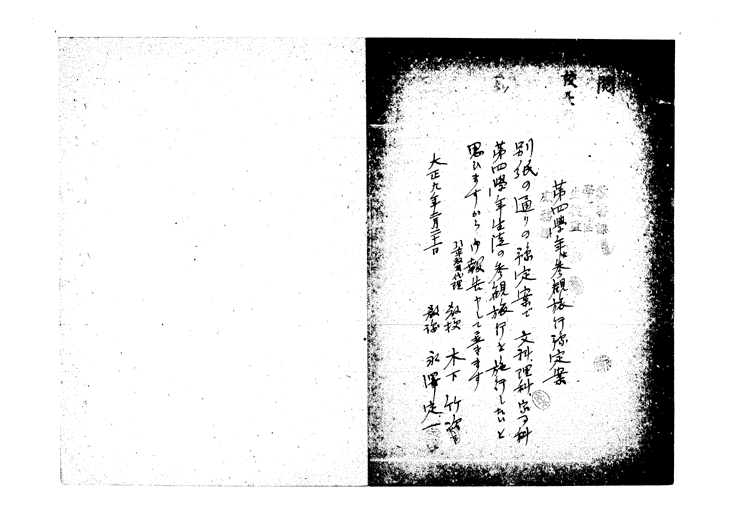 閲
第四學年参観旅行豫定案
別紙の通りの豫定案で文科理科家事科
第四學年生徒の参観旅行を施行したいと
思ひますから御報告申して置きます
大正九年二月二十一日
代理
教授 木下竹次
教諭 永澤定一